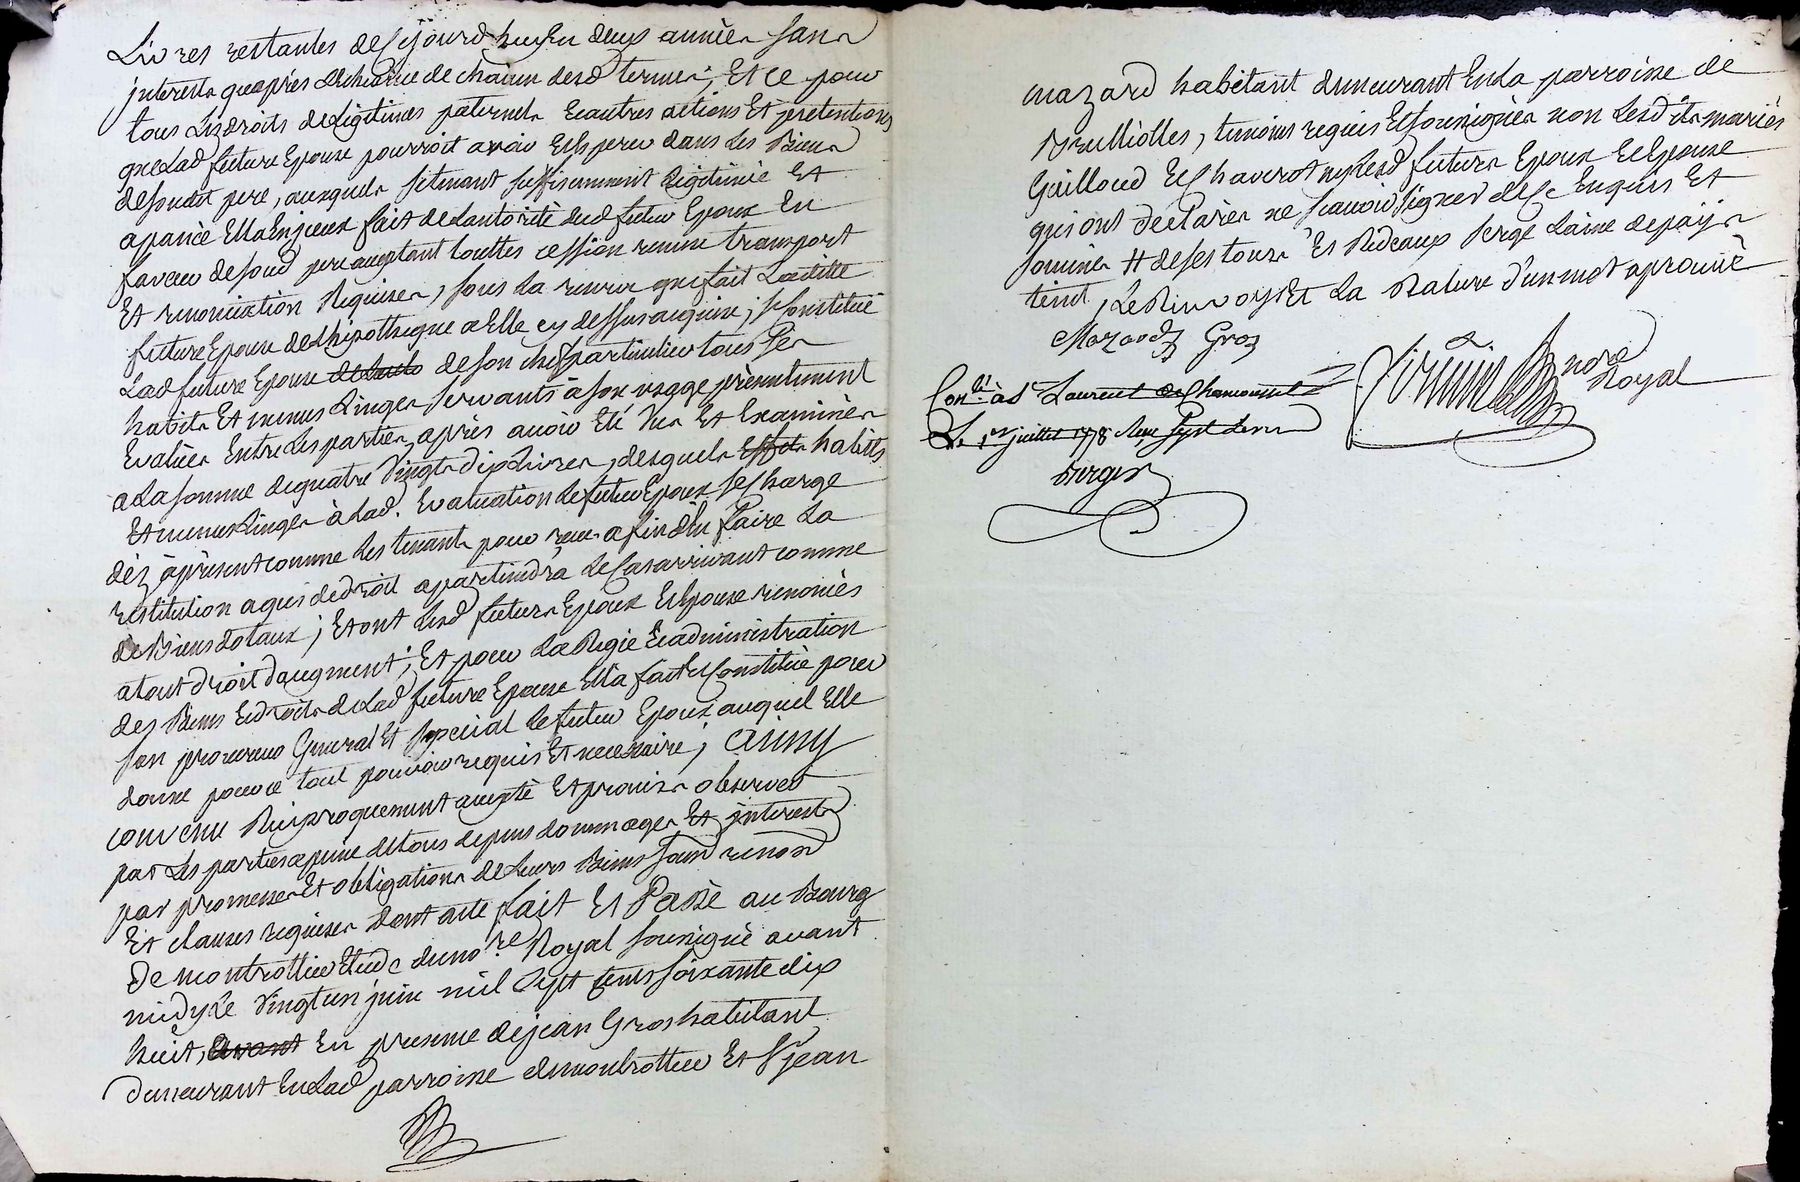 Livres restantes de ce jourdhuy en deux années sans
interests qu'après l'echeance de chacun desd termes, Et ce pour
tous Les droits de Legitimes paternels Et autres actions Et pretentions
que Lad future Epouse pourroit avoir Et Esperer dans Les Biens
de soudit pere, ausquels se tenant suffisemment Legitimée Et
apanée Ella Enjceux fait de Lautorité dud futur Epoux En
faveur de soud pere acceptant touttes cession remise transport
Et renonciation Requises, sous La reserve que fait Laditte
future Epouse de Lhipotheque a Elle cy dessus acquise; se Constitue
Lad future Epouse de son chef particulier tous ses
habits Et menus Linges servants à son usage présentement
Evalués Entre Les parties, après avoir Eté Vus Et Examinés
a La somme de quatre Vingts dix Livres, desquels Effets habits
Et menus Linges à Lad. Evaluation Le futur Epoux se Charge
déz àprésent comme Les tenants pour reçus afin d'En faire La
restitution a qui de droit apartiendra Le Cas arrivant comme
de Biens dotaux; Et ont Lesd futurs Epoux Et Epouse renoncés
a tout droit d'augment; Et pour La Regie Et administration
des Biens Et droits de Lad future Epouse Ella fait Et Constitué pour
son procureur General Et special Le futur Epoux auquel Elle
donne pour ce tout pouvoir requis Et necessaire; Ainsy
convenu Reciproquement accepté Et promis observer
par Les parties a peine de tous depens dommages Et interests
par promesses Et obligations de Leurs Biens soum renon
Et clauses requises dont acte fait Et Passé au Bourg
De montrottier Etude du no.re Royal soussigné avant
midy Le Vingt un juin mil sept cents soixante dix
huit, avant En presence de jean Gros habitant
demeurant En Lad parroisse de montrottier Et sr jean
mazard habitant demeurant En La parroisse de
Brulliolles, temoins requis Et soussignés non Lesdits mariés
Guilloud Et Chaverot ny Lesd futurs Epoux Et Epouse
qui ont déclarés ne scavoir signer de Ce Enquis Et
sommés # de ses tours Et Rideaux serge Laine de pays
teint, Le Renvoy Et La Rature d'un mot aprouvé
Mazard Gros
Con.lé à St Laurent de Chamousset
Le 1er juillet 1778 Reçu sept
nore
Royal